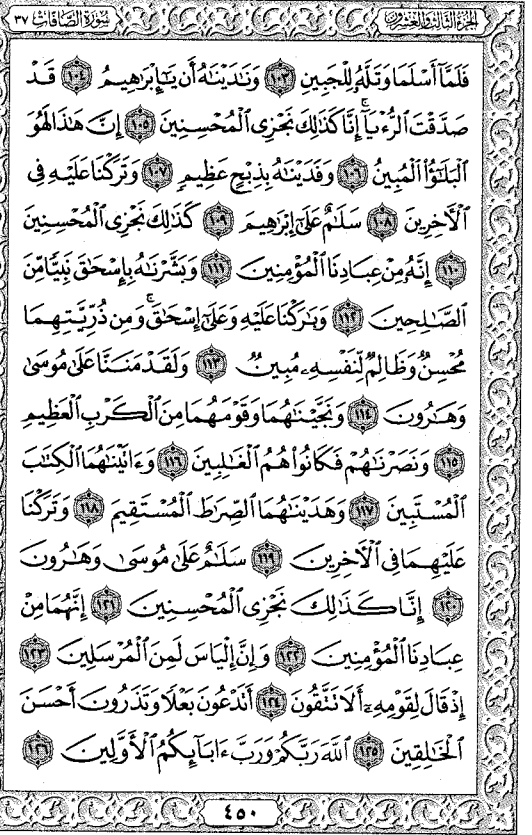 سورة الصافات ٣٧ الجزء الثالث والعشرون
فَلَمَّآ أَسْلَمَا وَتَلَّهُۥ لِلْجَبِينِ ١٠٣ وَنَٰدَيْنَٰهُ أَن يَٰٓإِبْرَٰهِيمُ ١٠٤ قَدْ
صَدَّقْتَ ٱلرُّءْيَآ ۚ إِنَّا كَذَٰلِكَ نَجْزِى ٱلْمُحْسِنِينَ ١٠٥ إِنَّ هَٰذَا لَهُوَ
ٱلْبَلَٰٓؤُا۟ ٱلْمُبِينُ ١٠٦ وَفَدَيْنَٰهُ بِذِبْحٍ عَظِيمٍ ١٠٧ وَتَرَكْنَا عَلَيْهِ فِى
ٱلْءَاخِرِينَ ١٠٨ سَلَٰمٌ عَلَىٰٓ إِبْرَٰهِيمَ ١٠٩ كَذَٰلِكَ نَجْزِى ٱلْمُحْسِنِينَ
١١٠ إِنَّهُۥ مِنْ عِبَادِنَا ٱلْمُؤْمِنِينَ ١١١ وَبَشَّرْنَٰهُ بِإِسْحَٰقَ نَبِيًّا مِّنَ
ٱلصَّٰلِحِينَ ١١٢ وَبَٰرَكْنَا عَلَيْهِ وَعَلَىٰٓ إِسْحَٰقَ ۚ وَمِن ذُرِّيَّتِهِمَا
مُحْسِنٌ وَظَالِمٌ لِّنَفْسِهِۦ مُبِينٌ ١١٣ وَلَقَدْ مَنَنَّا عَلَىٰ مُوسَىٰ
وَهَٰرُونَ ١١٤ وَنَجَّيْنَٰهُمَا وَقَوْمَهُمَا مِنَ ٱلْكَرْبِ ٱلْعَظِيمِ
١١٥ وَنَصَرْنَٰهُمْ فَكَانُوا۟ هُمُ ٱلْغَٰلِبِينَ ١١٦ وَءَاتَيْنَٰهُمَا ٱلْكِتَٰبَ
ٱلْمُسْتَبِينَ ١١٧ وَهَدَيْنَٰهُمَا ٱلصِّرَٰطَ ٱلْمُسْتَقِيمَ ١١٨ وَتَرَكْنَا
عَلَيْهِمَا فِى ٱلْءَاخِرِينَ ١١٩ سَلَٰمٌ عَلَىٰ مُوسَىٰ وَهَٰرُونَ
١٢٠ إِنَّا كَذَٰلِكَ نَجْزِى ٱلْمُحْسِنِينَ ١٢١ إِنَّهُمَا مِنْ
عِبَادِنَا ٱلْمُؤْمِنِينَ ١٢٢ وَإِنَّ إِلْيَاسَ لَمِنَ ٱلْمُرْسَلِينَ ١٢٣
إِذْ قَالَ لِقَوْمِهِۦٓ أَلَا تَتَّقُونَ ١٢٤ أَتَدْعُونَ بَعْلًا وَتَذَرُونَ أَحْسَنَ
ٱلْخَٰلِقِينَ ١٢٥ ٱللَّهَ رَبَّكُمْ وَرَبَّ ءَابَآئِكُمُ ٱلْأَوَّلِينَ ١٢٦
٤٥٠